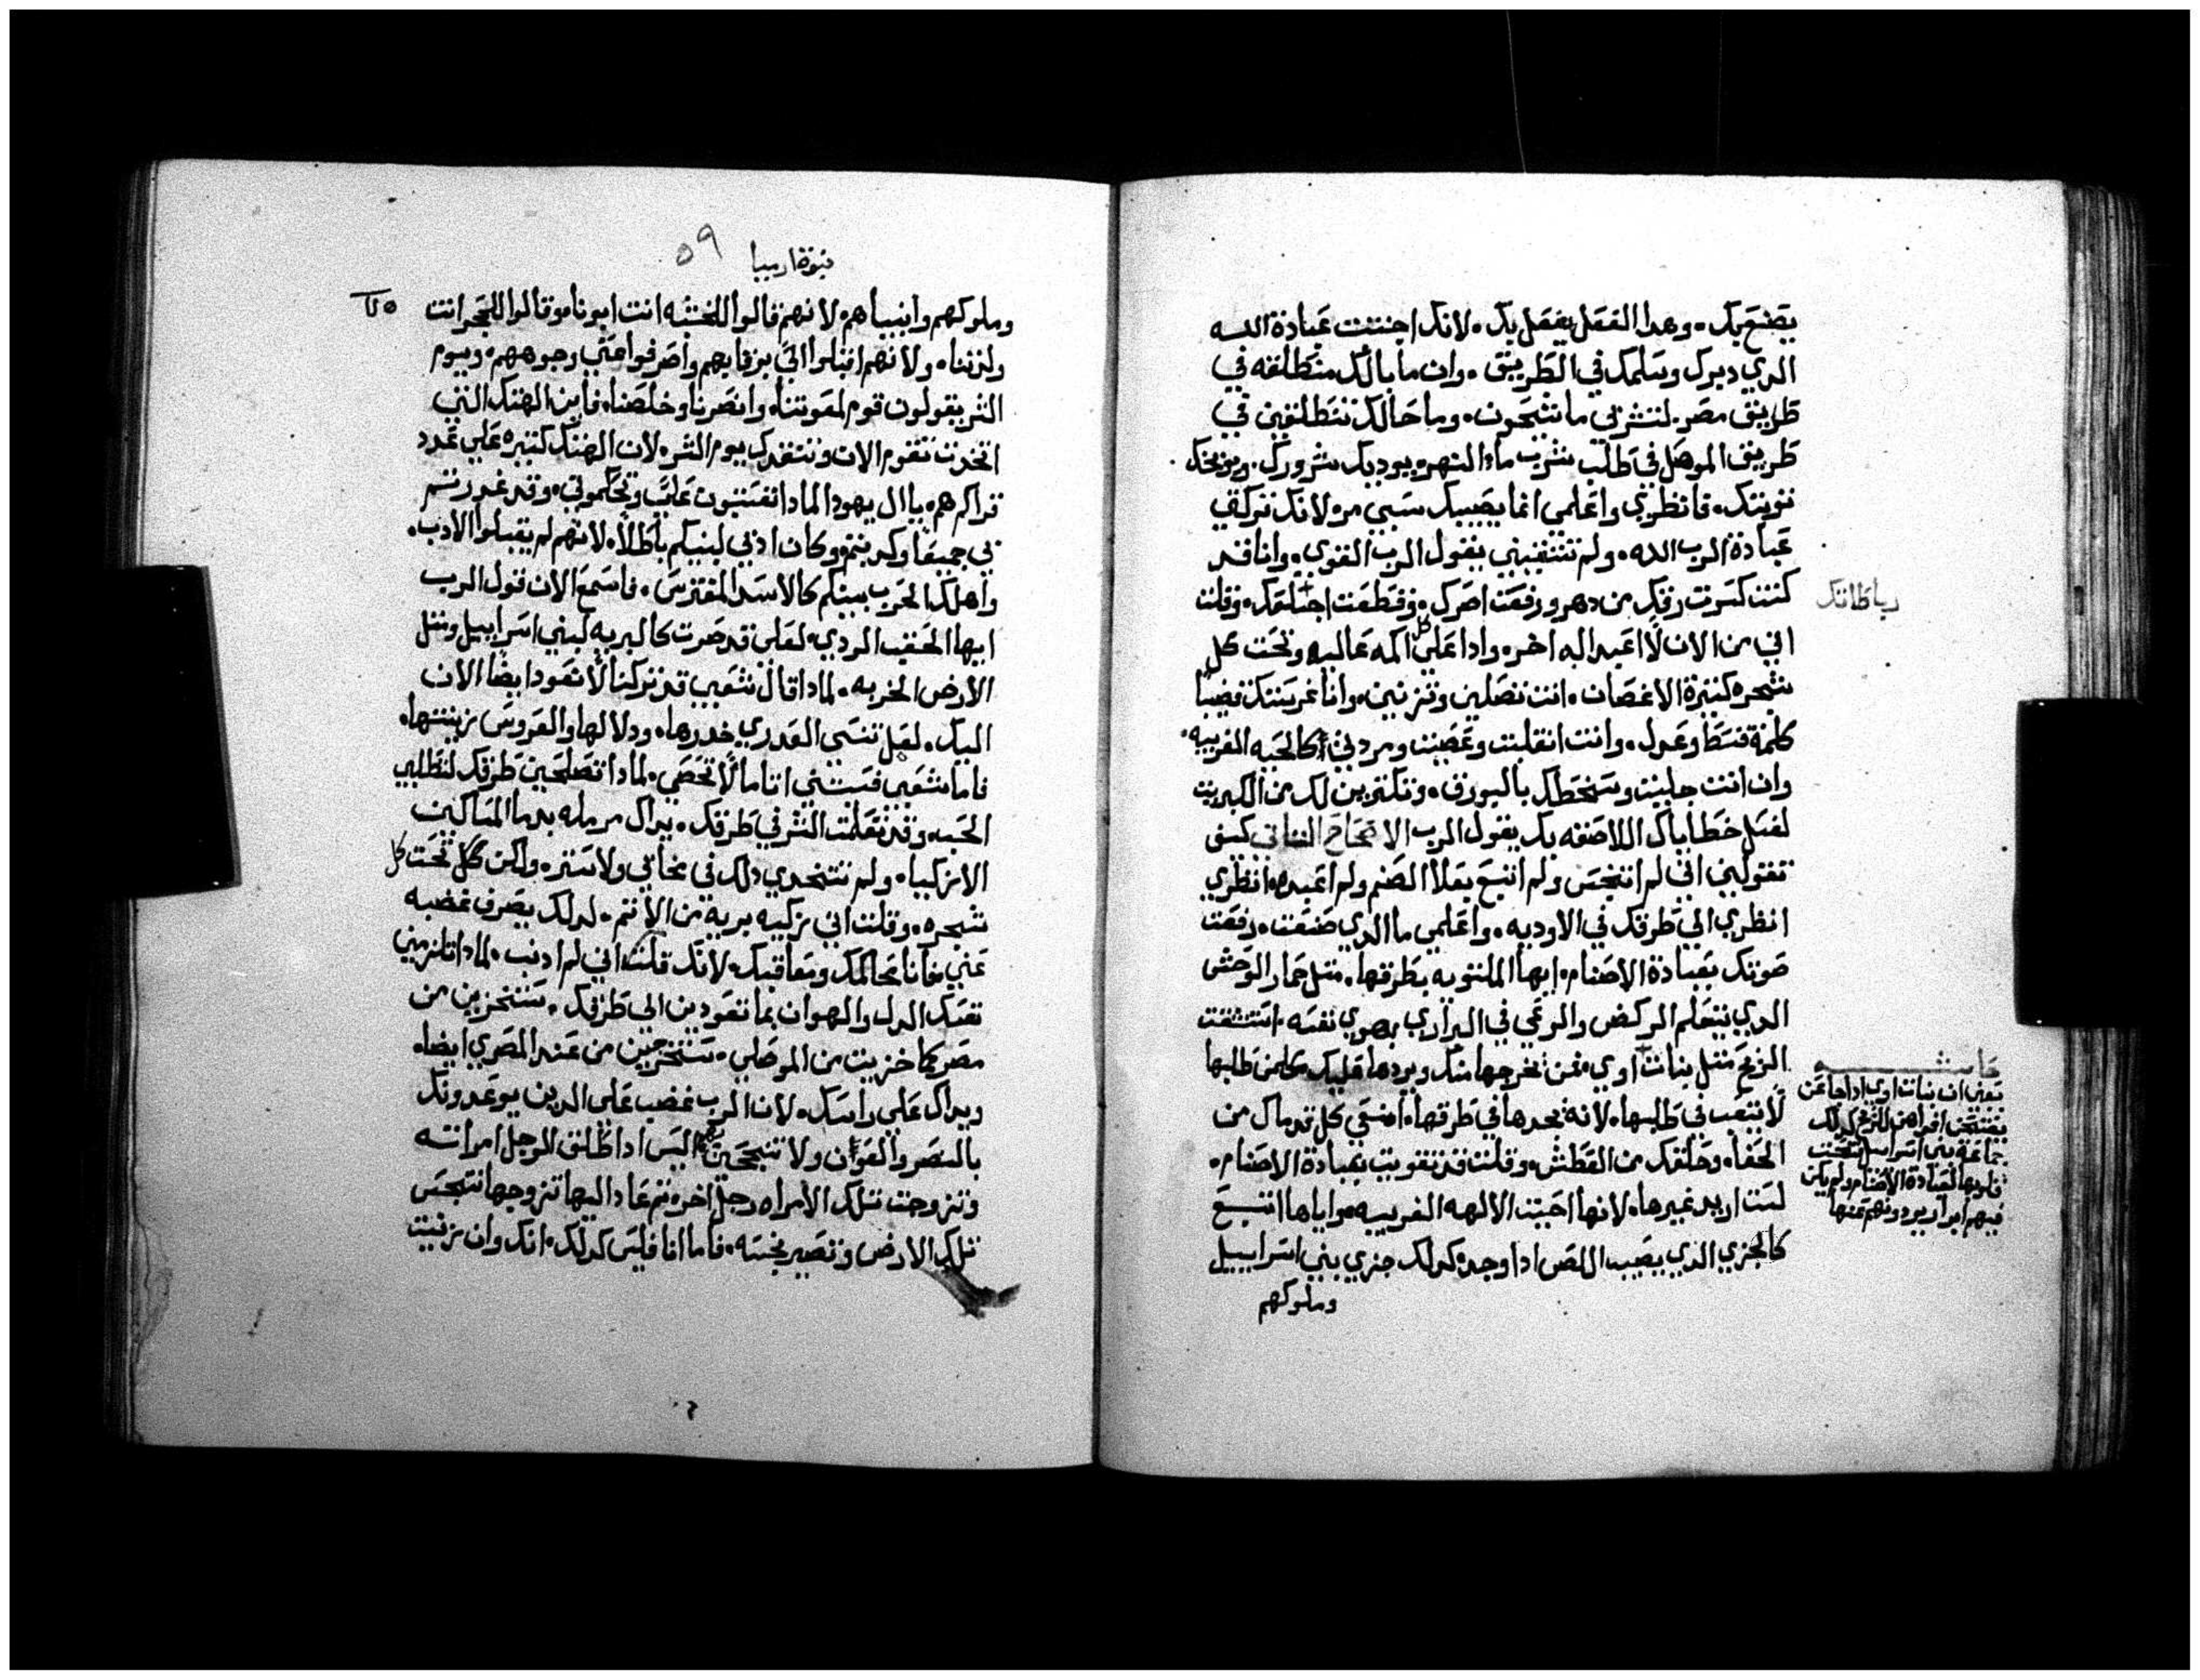 يصنع بك. وهدا الفعل يفعل بك. لانك اجتنبت عبادة الله
الدي دبرك وسلمك في الطريق. وان ما بالك منطلقه في
طريق مصر. لتشربي ما شيحون. وما حالك تنطلقين في
طريق الموصل في طلب شرب ماء النهر. يوديك شرورك. ويوبخك
توبتك. فانظري واعلمي انما يصيبك سيي مر لانك تركتي
عبادة الرب الله. ولم تتقيني يقول الرب القوي. وانا قد
كنت كسرت رقك من دهر ورفعت اصرك. وقطعت اجتلقك. وقلت
رباطاتك
اني من الان لا اعبد اله اخر. وادا على كل اكمه عاليه وتحت كل
شجره كتيرة الاغصان. انت تضلين وتزنين. وانا غرستك قضيبا
كلمة قسط وعدل. وانت انقلبت وعصيت ومردتي كالحبه الغريبه.
وان انت جليت وسخطك بالبورق. وتكترين لك من الكبريت
لغسل خطاياك اللاصقه بك يقول الرب الاصحاح التاني كيف
تقولين اني لم اتنجس ولم اتبع بعلا الصنم ولم اعبده. انظري
انظري الي طرقك في الاوديه. واعلمي ما الدي صنعت. رفعت
صوتك بعبادة الاصنام. ايها الملتويه بطرقها. متل حمار الوحش
الدي يتعلم الركض والرعي في البراري بهوي نفسه. استنشقت
الريح متل بنات اوي. فمن يخرجها منك ويردها عليك. كلمن طلبها
لا يتعب في طلبها. لانه يجدها في طرقها. امنعي كل قدماك من
الحفا. وحلقك من العطش. وقلت قد تقويت بعبادة الاصنام.
لست اريد غيرها. لانها احببت الالهه الغريبه. واياها اتبع
كالجزي الدي يصيب اللص ادا وجد. كدلك جزي بني اسراييل
وملوكهم
حاشيه
يعني ان بنات اوي ادا جاعن
يفتحن افواههن للريح كدلك
جماعة بني اسراييل انفتحت
قلوبها لعبادة الاصنام ولم يكن
فيهم ابرار يردونهم عنها
نبوة ارميا
٥٩
وملوكهم وانبياهم. لانهم قالوا للخشبه انت ابونا. وقالوا للحجر انت
ولدتنا. ولانهم اقبلوا الي برقابهم واصرفوا عني وجوههم. ويوم
الشر يقولون قوم لمعونتنا. وانصرنا وخلصنا. فاين الهتك التي
اتخدت تقوم الان وتنقدك يوم الشر. لان الهتك كتيره علي عدد
قراكم. يا ال يهودا لمادا تفتنون علي وتحاكموني. وقد غدرتم
بي جميعا وكدبتم. وكان ادبي لبنيكم باطلا. لانهم لم يقبلوا الادب.
واهلك الحرب بينكم كالاسد المفترس. فاسمع الان قول الرب
ايها الحقب الردي. لعلي قد صرت كالبريه لبني اسراييل ومتل
الارض الخربه. لمادا قال شعبي قد تركنا لا نعود ايضا الان
اليك. لعل تنسي العدري خدرها. ودلالها والعروس زينتها.
فاما شعبي فنسيني اياما لا تحصي. لمادا تصلحين طرقك لتطلبي
الحبه. وقد تعلمت الشر في طرقك. يداك مرمله بدما المساكين
الازكيا. ولم تتخدي دلك في مخاني ولا ستر. ولكن تحت كل
شجره. وقلت اني زكيه بريه من الاتم. لدلك يصرف غضبه
عني. فانا محاكمك ومعاقبك. لانك قلت اني لم ادنب. لمادا تلزمين
نفسك الدل والهوان بما تعودين الي طرقك. ستخزين من
مصر كما خزيت من الموصلي. ستخرجين من عند المصري ايضا.
ويداك علي راسك. لان الرب غضب علي الدين يوعدونك
بالنصر والعون ولا تنجحين. اليس ادا طلق الرجل امراته
وتزوجت تلك الامراه رجل اخر. تم عاد اليها تزوجها تتنجس
تلك الارض وتصير نجسه. فاما انا فليس كدلك. انك وان زنيت